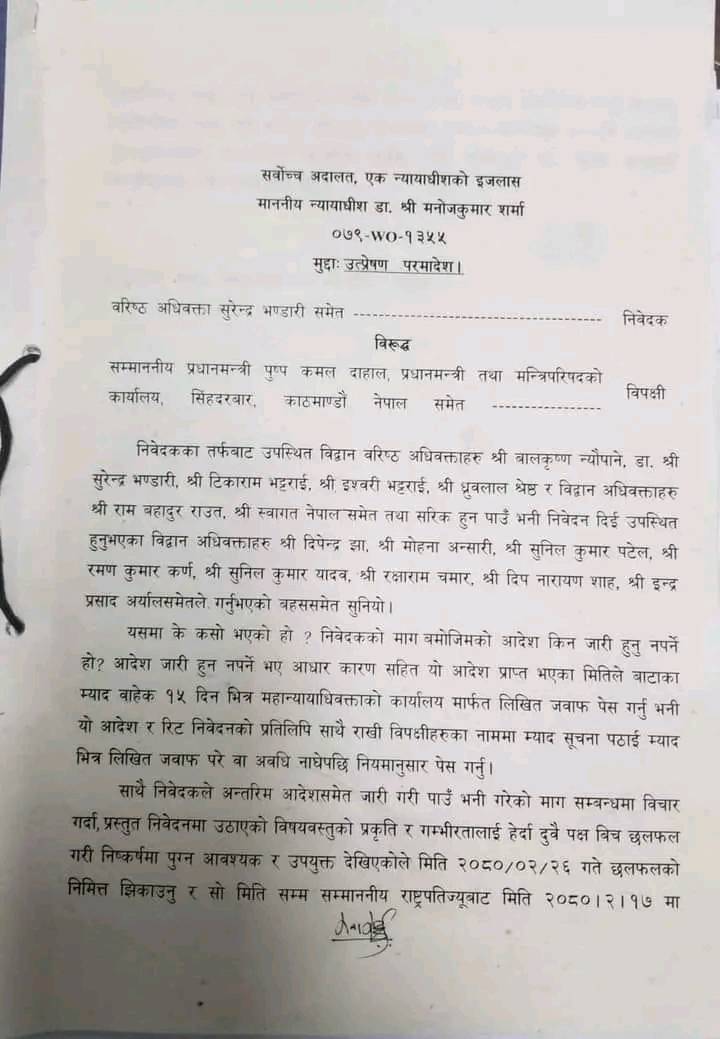 सर्वोच्च अदालत, एक न्यायाधीशको इजलास
माननीय न्यायाधीश डा. श्री मनोजकुमार शर्मा
०७९-WO-१३५५
मुद्दाः उत्प्रेषण परमादेश।
वरिष्ठ अधिवक्ता सुरेन्द्र भण्डारी समेत ------------------------------------ निवेदक
विरूद्ध
सम्माननीय प्रधानमन्त्री पुष्प कमल दाहाल, प्रधानमन्त्री तथा मन्त्रिपरिषदको
कार्यालय, सिंहदरबार, काठमाण्डौं नेपाल समेत ---------------- विपक्षी
निवेदकका तर्फबाट उपस्थित विद्वान वरिष्ठ अधिवक्ताहरु श्री बालकृष्ण न्यौपाने, डा. श्री
सुरेन्द्र भण्डारी, श्री टिकाराम भट्टराई, श्री इश्वरी भट्टराई, श्री ध्रुवलाल श्रेष्ठ र विद्वान अधिवक्ताहरु
श्री राम बहादुर राउत, श्री स्वागत नेपाल समेत तथा सरिक हुन पाउँ भनी निवेदन दिई उपस्थित
हुनुभएका विद्वान अधिवक्ताहरु श्री दिपेन्द्र झा, श्री मोहना अन्सारी, श्री सुनिल कुमार पटेल, श्री
रमण कुमार कर्ण, श्री सुनिल कुमार यादव, श्री रक्षाराम चमार, श्री दिप नारायण शाह, श्री इन्द्र
प्रसाद अर्यालसमेतले गर्नुभएको बहससमेत सुनियो।
यसमा के कसो भएको हो ? निवेदकको माग बमोजिमको आदेश किन जारी हुनु नपर्ने
हो? आदेश जारी हुन नपर्ने भए आधार कारण सहित यो आदेश प्राप्त भएका मितिले बाटाका
म्याद वाहेक १५ दिन भित्र महान्यायाधिवक्ताको कार्यालय मार्फत लिखित जवाफ पेस गर्नु भनी
यो आदेश र रिट निवेदनको प्रतिलिपि साथै राखी विपक्षीहरुका नाममा म्याद सूचना पठाई म्याद
भित्र लिखित जवाफ परे वा अवधि नाघेपछि नियमानुसार पेस गर्नु।
साथै निवेदकले अन्तरिम आदेशसमेत जारी गरी पाउँ भनी गरेको माग सम्बन्धमा विचार
गर्दा, प्रस्तुत निवेदनमा उठाएको विषयवस्तुको प्रकृति र गम्भीरतालाई हेर्दा दुवै पक्ष बिच छलफल
गरी निष्कर्षमा पुग्न आवश्यक र उपयुक्त देखिएकोले मिति २०८०/०२/२६ गते छलफलको
निमित्त झिकाउनु र सो मिति सम्म सम्माननीय राष्ट्रपतिज्यूबाट मिति २०८०।२।१७ मा